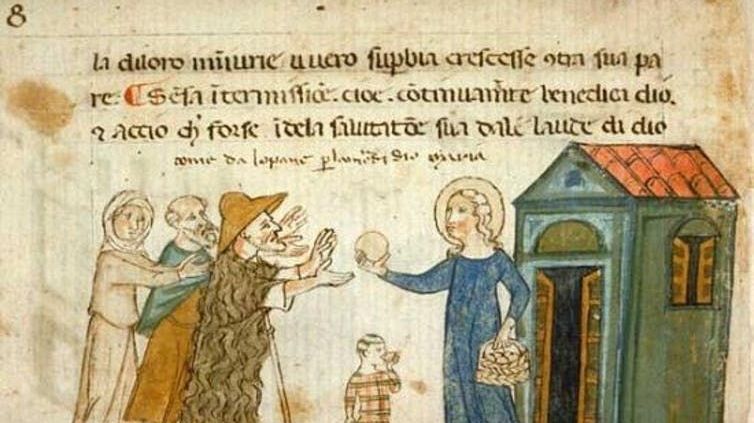 8
la diloro iniurie uuero supbia crescesse ɔtra sua pa
re. ¶ Sẽsa ĩtermissiõe. cioe. cõtinuamẽte benedicea dio.
⁊ accio ch̄ forse ĩdela salutatiõe sua dale laude di dio
come da lopane p lamor di dio maria